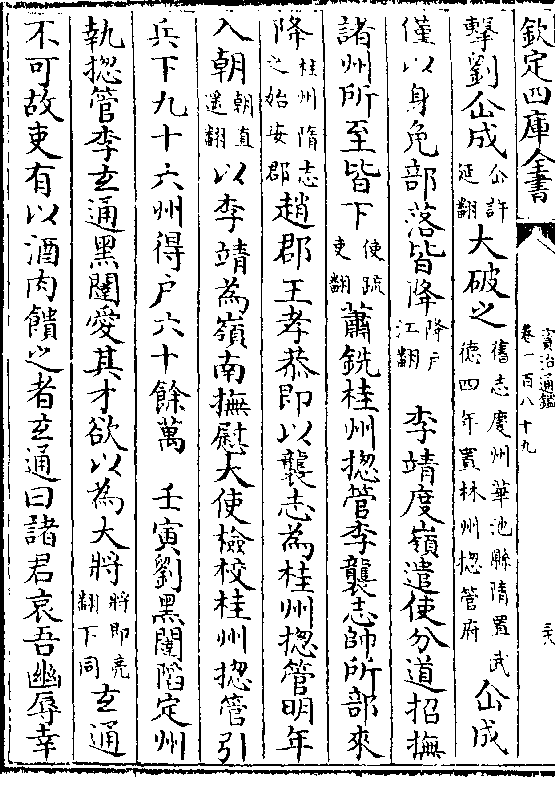 欽定四庫全書
資治通鑑
卷一百八十九
擊劉仚成仚許延翻大破之舊志慶州華池縣隋置武德四年置林州揔管府仚成
僅以身免部落皆降降戶江翻　李靖度嶺遣使分道招撫
諸州所至皆下使疏吏翻蕭銑桂州揔管李襲志帥所部來
降桂州隋志之始安郡趙郡王孝恭即以襲志為桂州揔管明年
入朝朝直遥翻以李靖為嶺南撫慰大使檢校桂州揔管引
兵下九十六州得戶六十餘萬　壬寅劉黑闥陷定州
執揔管李玄通黑闥愛其才欲以為大將將即亮翻下同玄通
不可故吏有以酒肉饋之者玄通曰諸君哀吾幽辱幸